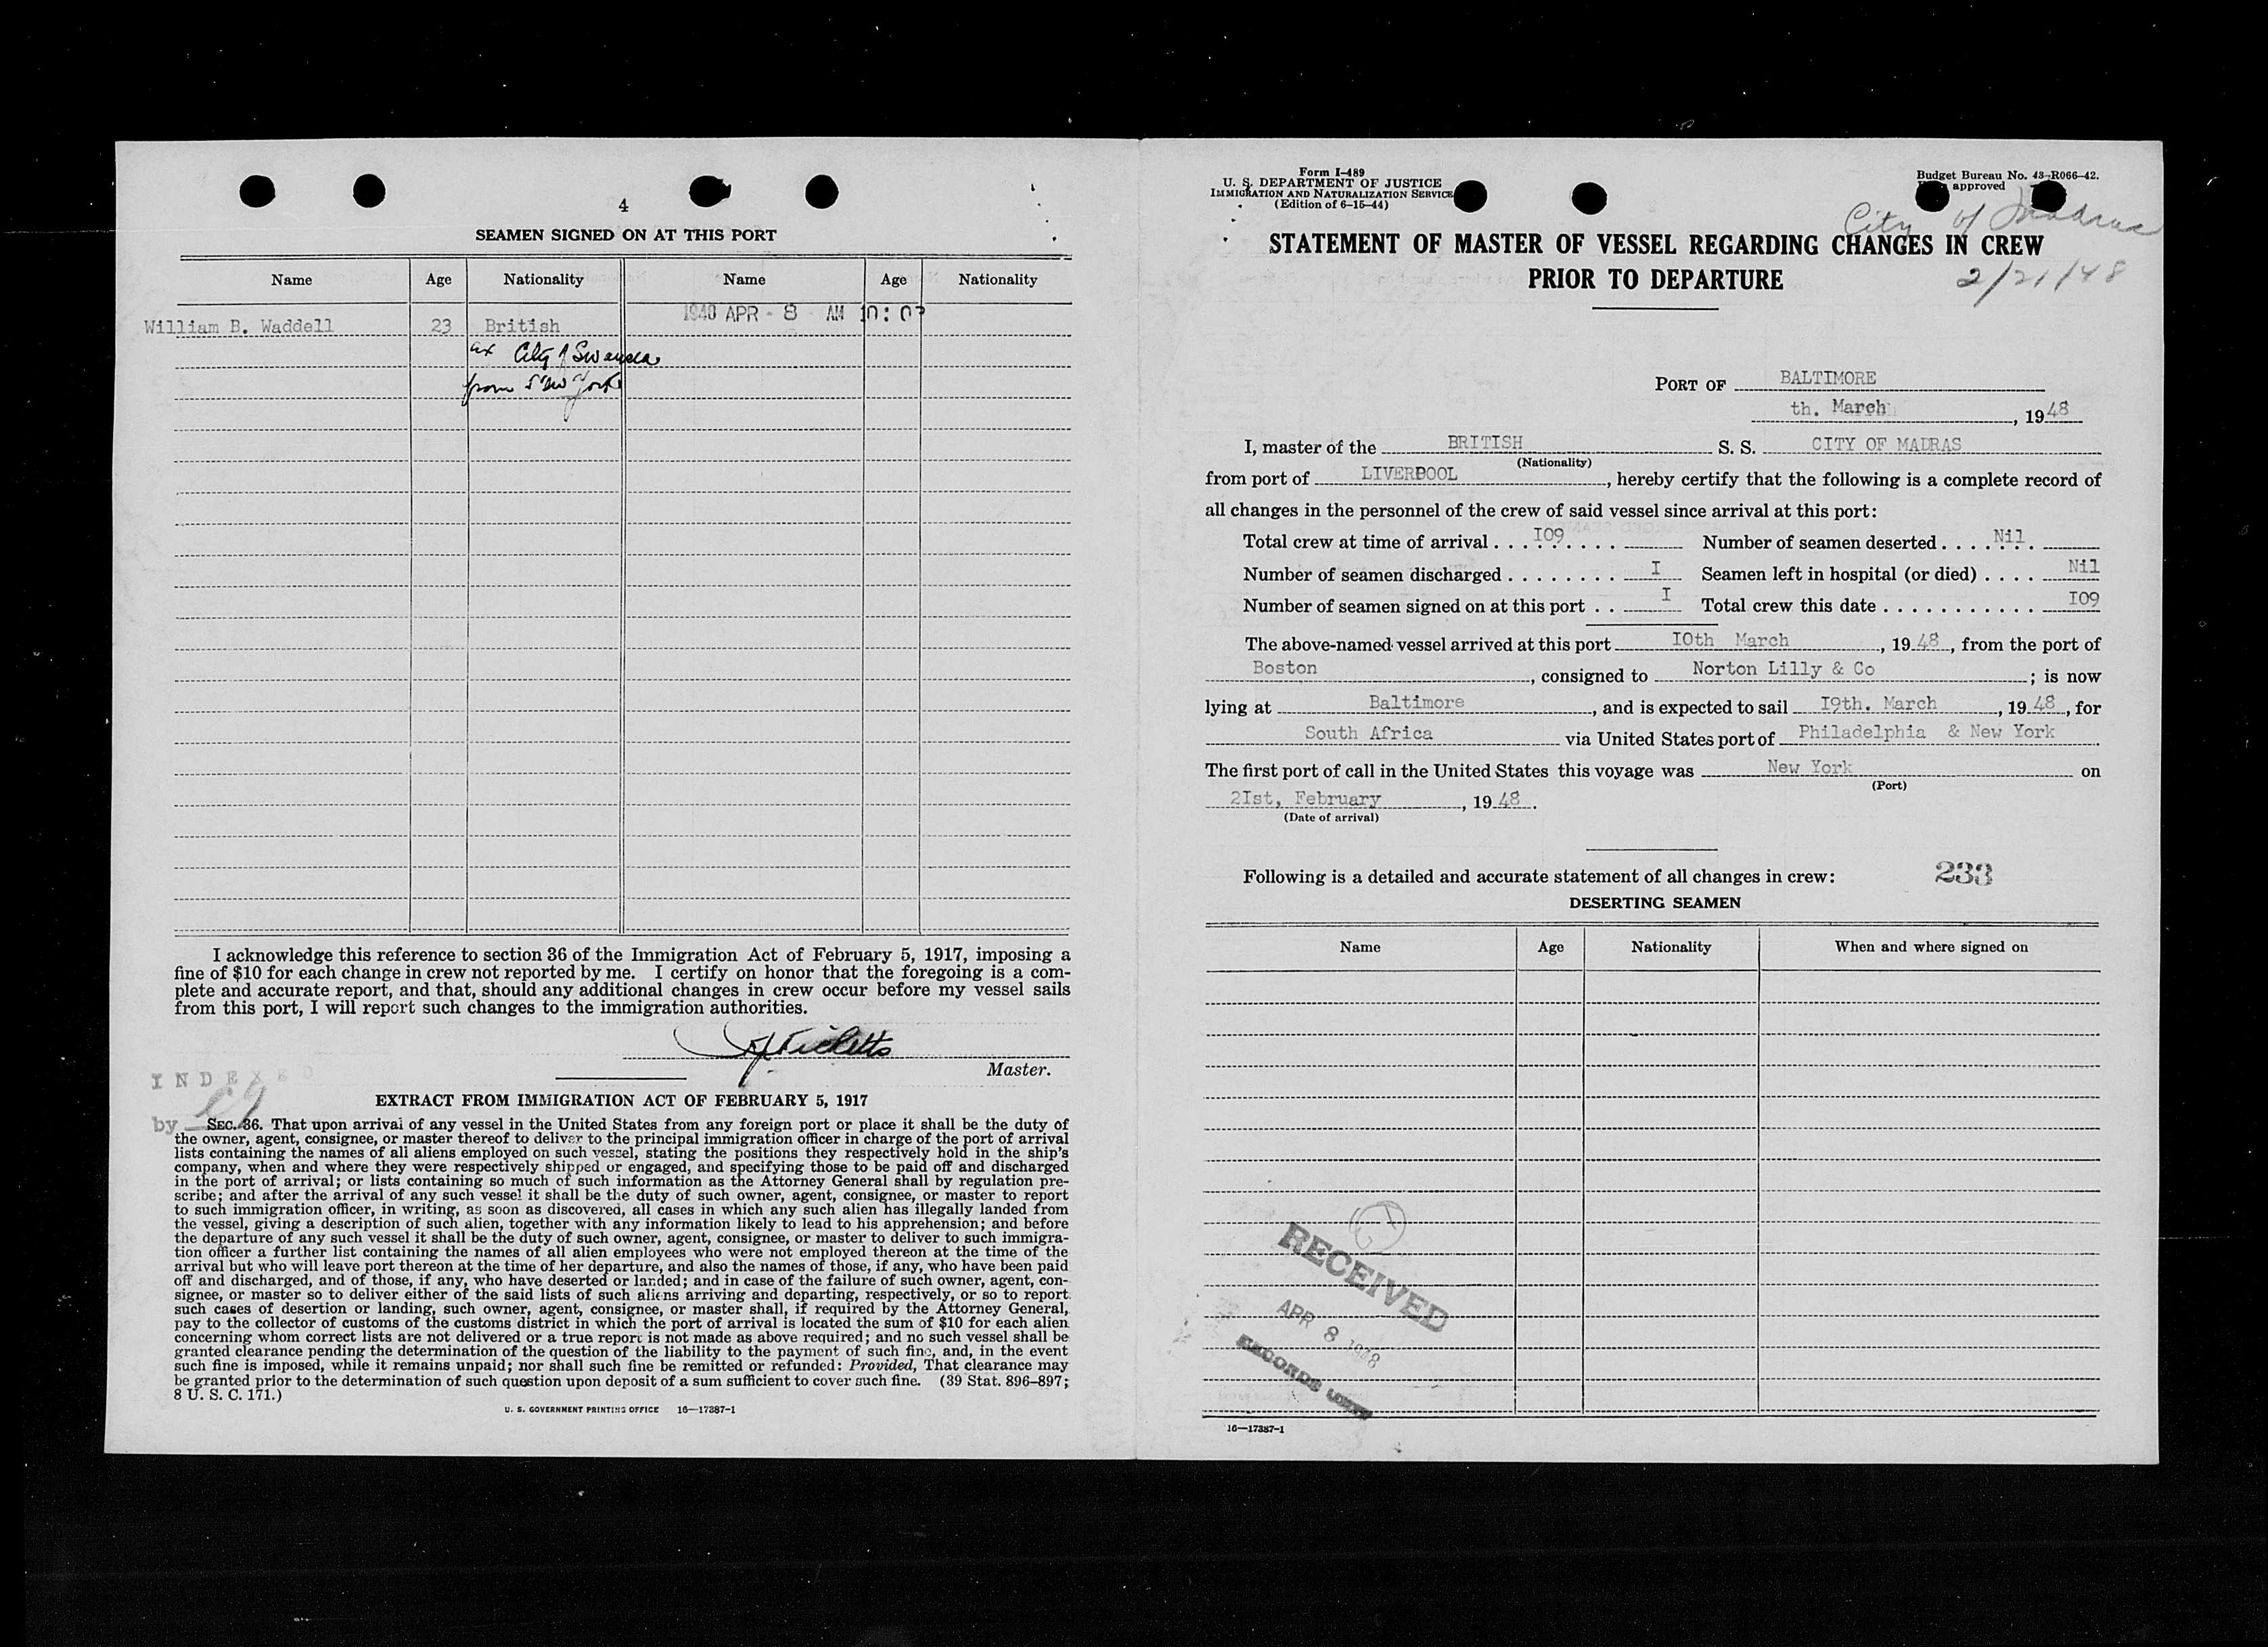 4
SEAMEN SIGNED ON AT THIS PORT
Name Age Nationality Name Age Nationality
1948 APR - 8 AM 10: 07
William B. Waddell 23 British
ex City of Swansea
from New York
I acknowledge this reference to section 36 of the Immigration Act of February 5, 1917, imposing a
fine of $10 for each change in crew not reported by me. I certify on honor that the foregoing is a com-
plete and accurate report, and that, should any additional changes in crew occur before my vessel sails
from this port, I will report such changes to the immigration authorities.
Master.
INDEXED
by
EXTRACT FROM IMMIGRATION ACT OF FEBRUARY 5, 1917
SEC. 36. That upon arrival of any vessel in the United States from any foreign port or place it shall be the duty of
the owner, agent, consignee, or master thereof to deliver to the principal immigration officer in charge of the port of arrival
lists containing the names of all aliens employed on such vessel, stating the positions they respectively hold in the ship's
company, when and where they were respectively shipped or engaged, and specifying those to be paid off and discharged
in the port of arrival; or lists containing so much of such information as the Attorney General shall by regulation pre-
scribe; and after the arrival of any such vessel it shall be the duty of such owner, agent, consignee, or master to report
to such immigration officer, in writing, as soon as discovered, all cases in which any such alien has illegally landed from
the vessel, giving a description of such alien, together with any information likely to lead to his apprehension; and before
the departure of any such vessel it shall be the duty of such owner, agent, consignee, or master to deliver to such immigra-
tion officer a further list containing the names of all alien employees who were not employed thereon at the time of the
arrival but who will leave port thereon at the time of her departure, and also the names of those, if any, who have been paid
off and discharged, and of those, if any, who have deserted or landed; and in case of the failure of such owner, agent, con-
signee, or master so to deliver either of the said lists of such aliens arriving and departing, respectively, or so to report
such cases of desertion or landing, such owner, agent, consignee, or master shall, if required by the Attorney General,
pay to the collector of customs of the customs district in which the port of arrival is located the sum of $10 for each alien
concerning whom correct lists are not delivered or a true report is not made as above required; and no such vessel shall be
granted clearance pending the determination of the question of the liability to the payment of such fine, and, in the event
such fine is imposed, while it remains unpaid; nor shall such fine be remitted or refunded: Provided, That clearance may
be granted prior to the determination of such question upon deposit of a sum sufficient to cover such fine. (39 Stat. 896–897;
8 U. S. C. 171.)
U. S. GOVERNMENT PRINTING OFFICE 16—17387-1
Form I-489
U. S. DEPARTMENT OF JUSTICE
IMMIGRATION AND NATURALIZATION SERVICE
(Edition of 6-15-44)
Budget Bureau No. 43-R066-42.
approved
City of Madras
STATEMENT OF MASTER OF VESSEL REGARDING CHANGES IN CREW
PRIOR TO DEPARTURE
2/21/48
PORT OF BALTIMORE
th. March, 1948
I, master of the BRITISH S. S. CITY OF MADRAS
(Nationality)
from port of LIVERPOOL, hereby certify that the following is a complete record of
all changes in the personnel of the crew of said vessel since arrival at this port:
Total crew at time of arrival . . . I09 . . . . Number of seamen deserted . . . . Nil
Number of seamen discharged . . . . . . . . I Seamen left in hospital (or died) . . . . Nil
Number of seamen signed on at this port . . I Total crew this date . . . . . . . . . . . I09
The above-named vessel arrived at this port I0th March, 1948, from the port of
Boston, consigned to Norton Lilly & Co; is now
lying at Baltimore, and is expected to sail I9th. March, 1948, for
South Africa via United States port of Philadelphia & New York.
The first port of call in the United States this voyage was New York on
(Port)
2Ist, February, 1948.
(Date of arrival)
Following is a detailed and accurate statement of all changes in crew: 233
DESERTING SEAMEN
Name Age Nationality When and where signed on
RECEIVED
APR 8 1948
RECORDS
16—17387-1